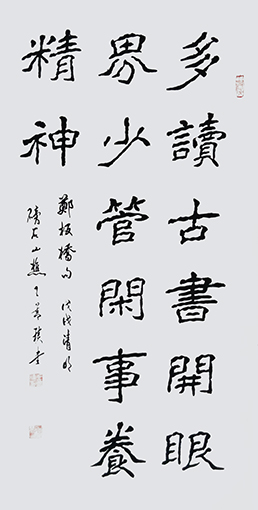 多讀古書開眼
界少管閑事養
精神
鄭板橋句 戊戌清明